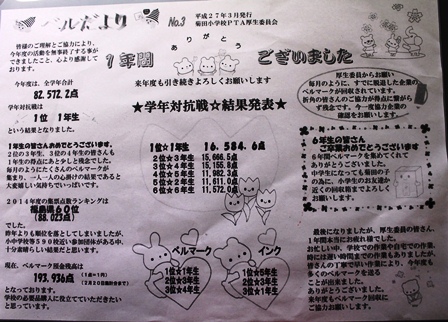 ベルだより
No.3
平成27年3月発行
菊田小学校PTA厚生委員会
ありがとう
1年間 ございました
来年度も引き続きよろしくお願いします
皆様のご理解とご協力により、
今年度の活動を無事終了する事が
できましたこと、心より感謝して
おります。
今年度は、全学年合計
82,572.2点
学年対抗戦は
1位 1年生
という結果となりました。
1年生の皆さんおめでとうございます。
2位の3年生、3位の4年生の皆さんも
1年生の得点にあと少しと残念でした。
毎月のようにたくさんのベルマークが
集まり、一人一人の心掛けの結果であると
大変嬉しい気持ちでいっぱいです。
2014年度の集票点数ランキングは
福島県60位
(88,023点)
でした。
昨年よりも順位を落としてしまいましたが、
小中学校等590校近い参加団体がある中、
十分素晴らしい結果だと思います。
現在、ベルマーク預金残高は
193,936点
(1点=1円)
となっております。
学校の必要品購入に役立てていただきたい
と思っています。
★学年対抗戦☆結果発表★
1位☆1年生 16,584.6点
2位☆3年生 15,666.5点
3位☆4年生
4位☆5年生
5位☆2年生
6位☆6年生
ベルマーク
1位☆1年生
2位☆3年生
3位☆4年生
インク
1位☆5年生
2位☆3年生
3位☆1年生
厚生委員会からお願い
毎月のように、すでに脱退した企業の
ベルマークが回収されています。
折角の皆さんのご協力が得点に繋がら
ず残念です。今一度協力企業の
確認をお願いします。
6年生の皆さん
ご卒業おめでとうございます
6年間ベルマークを集めてくれて
ありがとうございました。
中学生になっても菊田の子
の為に、小学生のお友達が
近くの回収箱までよろしく
お願いします。
最後になりましたが、厚生委員の皆さん、
1年間本当にお疲れ様でした。
お忙しい中、学校での作業や自宅での作業、
時には遅い時間までの作業もありましたが、
皆さんの丁寧で早い作業により、今年度も
多くのベルマークを送る
ことが出来ました。
ありがとうございました。
来年度もベルマーク回収に
ご協力お願いします。